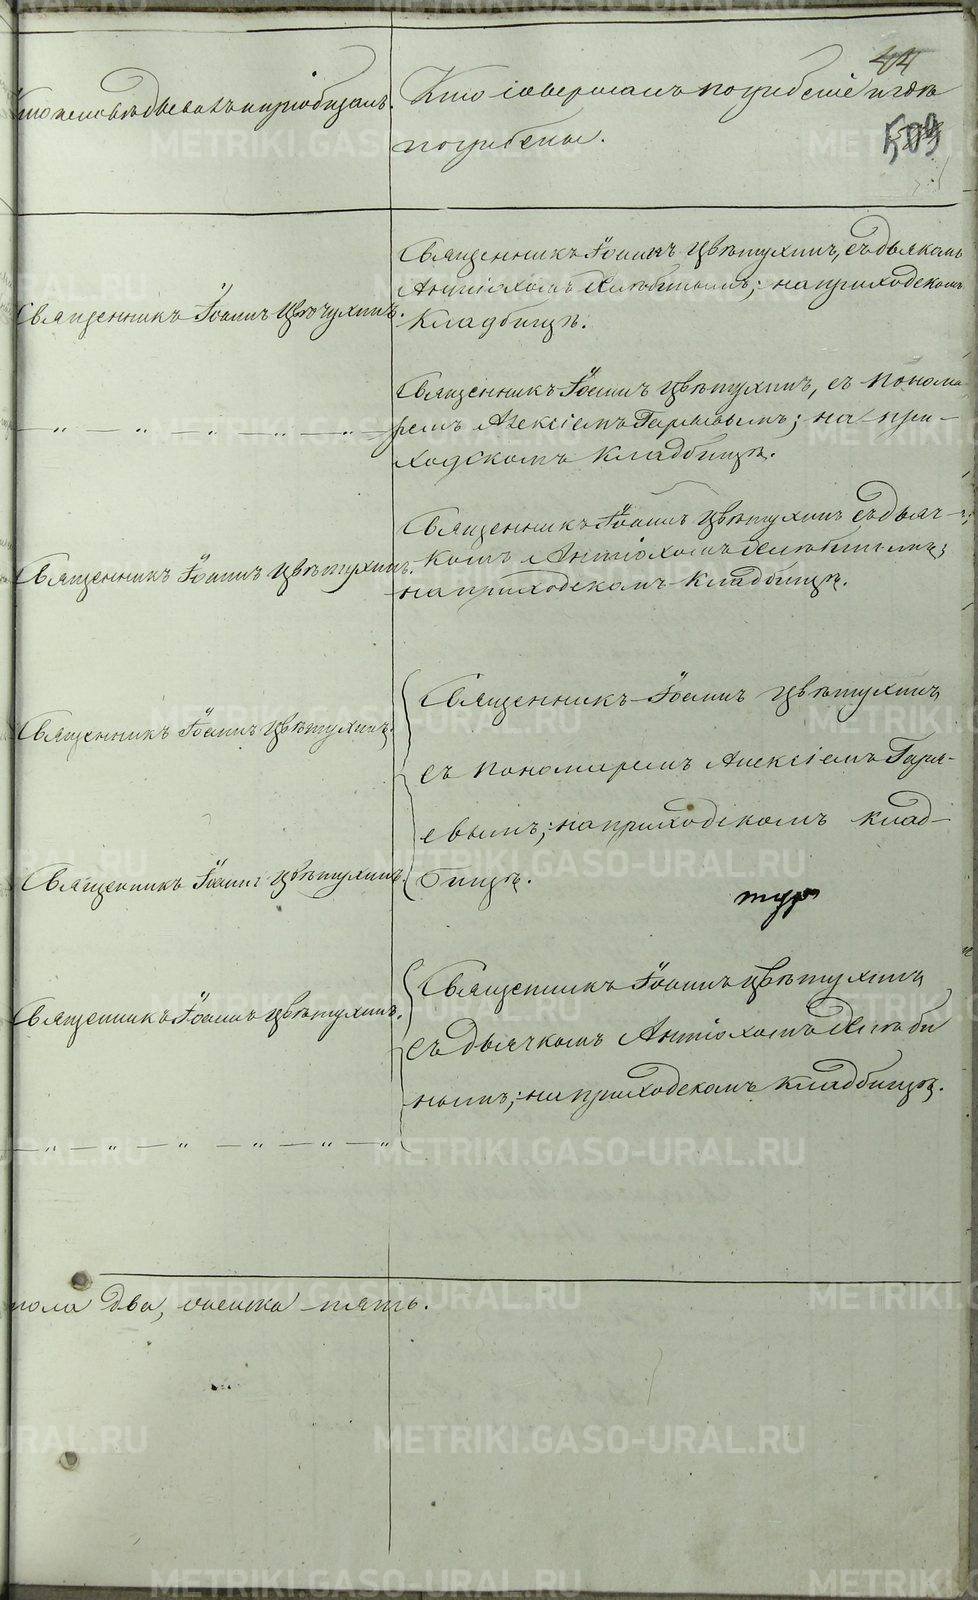 44
509
Кто исповѣдывалъ и пріобщалъ.
Кто совершалъ погребеніе и гдѣ
погребены.
Священникъ Іоаннъ Цвѣтухинъ.
Священникъ Іоаннъ Цвѣтухинъ, съ дьякомъ
Антіохомъ Хлѣбинымъ; на приходскомъ
кладбищѣ.
— " — " — " — " — " —
Священникъ Іоаннъ Цвѣтухинъ, съ понома-
ремъ Алексіемъ Гаряевымъ; на при-
ходскомъ кладбищѣ.
Священникъ Іоаннъ Цвѣтухинъ.
Священникъ Іоаннъ Цвѣтухинъ съ дьяч-
комъ Антіохомъ Хлѣбинымъ;
на приходскомъ кладбищѣ.
Священникъ Іоаннъ Цвѣтухинъ.
Священникъ Іоаннъ Цвѣтухинъ
съ пономаремъ Алексіемъ Гаря-
евымъ; на приходскомъ клад-
бищѣ.
Священникъ Іоаннъ Цвѣтухинъ.
Священникъ Іоаннъ Цвѣтухинъ.
Священникъ Іоаннъ Цвѣтухинъ
съ дьячкомъ Антіохомъ Хлѣби
нымъ; на приходскомъ кладбищѣ.
— " — " — " — " — " — "
пола два, женска пять.
METRIKI.GASO-URAL.RU